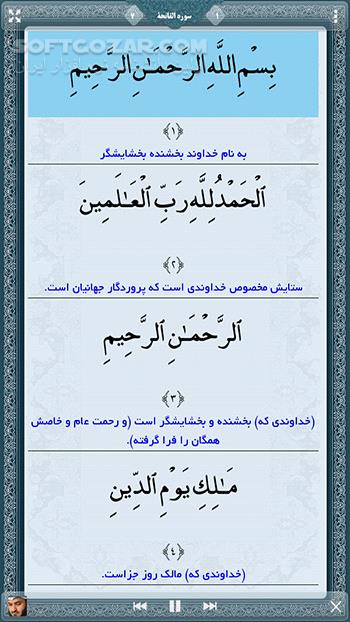 ۱ سوره الفاتحة ۷
SOFTGOZAR.COM
بِسْمِ اللَّهِ الرَّحْمَٰنِ الرَّحِيمِ
﴿۱﴾
به نام خداوند بخشنده بخشایشگر
الْحَمْدُ لِلَّهِ رَبِّ الْعَالَمِينَ
﴿۲﴾
ستایش مخصوص خداوندی است که پروردگار جهانیان است.
الرَّحْمَٰنِ الرَّحِيمِ
﴿۳﴾
(خداوندی که) بخشنده و بخشایشگر است (و رحمت عام و خاصش
همگان را فرا گرفته).
مَالِكِ يَوْمِ الدِّينِ
﴿٤﴾
(خداوندی که) مالک روز جزاست.